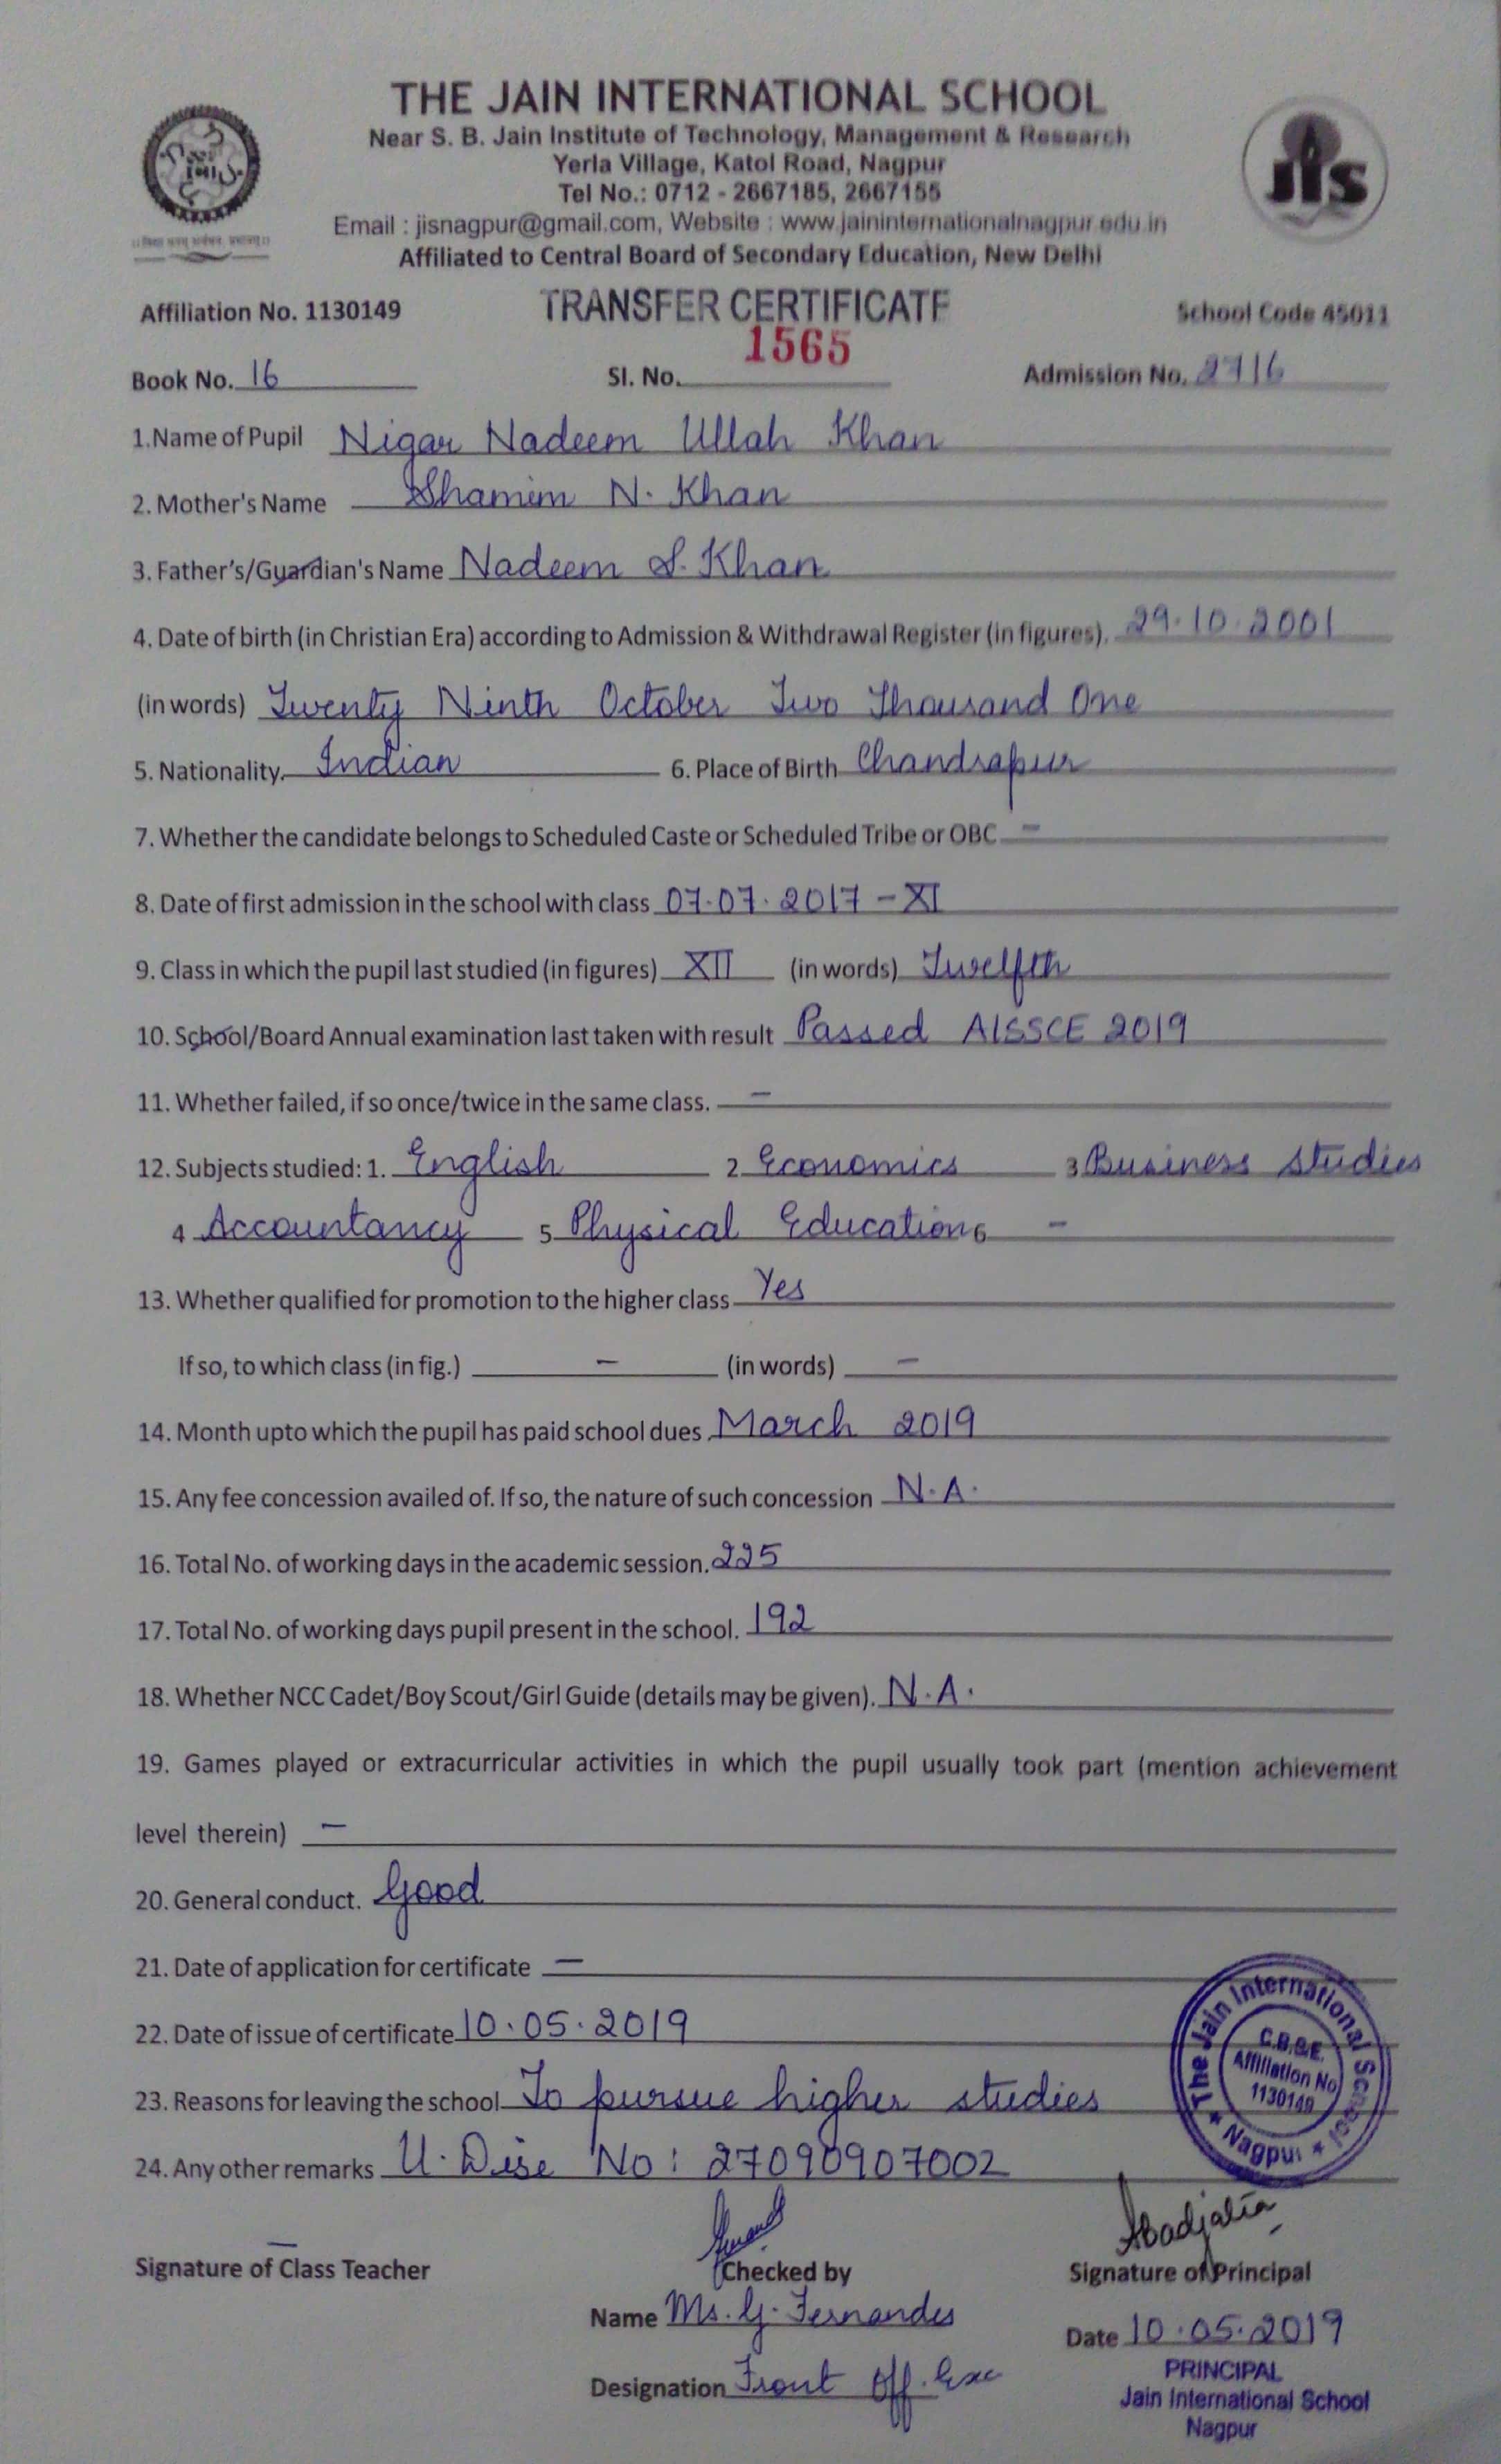 THE JAIN INTERNATIONAL SCHOOL
Near S. B. Jain Institute of Technology, Management & Research
Yerla Village, Katol Road, Nagpur
Tel No.: 0712 - 2667185, 2667155
Email : jisnagpur@gmail.com, Website : www.jaininternationalnagpur.edu.in
Affiliated to Central Board of Secondary Education, New Delhi
jis
Affiliation No. 1130149 TRANSFER CERTIFICATE School Code 45011
Book No. 16 Sl. No. 1565 Admission No. 2716
1.Name of Pupil Nigar Nadeem Ullah Khan
2. Mother's Name Shamim N. Khan
3. Father's/Guardian's Name Nadeem S. Khan
4. Date of birth (in Christian Era) according to Admission & Withdrawal Register (in figures). 29.10.2001
(in words) Twenty Ninth October Two Thousand One
5. Nationality. Indian 6. Place of Birth Chandrapur
7. Whether the candidate belongs to Scheduled Caste or Scheduled Tribe or OBC -
8. Date of first admission in the school with class 07.07.2017 - XI
9. Class in which the pupil last studied (in figures) XII (in words) Twelfth
10. School/Board Annual examination last taken with result Passed AISSCE 2019
11. Whether failed, if so once/twice in the same class. -
12. Subjects studied: 1. English 2 Economics 3 Business studies
4 Accountancy 5 Physical Education 6 -
13. Whether qualified for promotion to the higher class Yes
If so, to which class (in fig.) - (in words) -
14. Month upto which the pupil has paid school dues March 2019
15. Any fee concession availed of. If so, the nature of such concession N.A.
16. Total No. of working days in the academic session. 225
17. Total No. of working days pupil present in the school. 192
18. Whether NCC Cadet/Boy Scout/Girl Guide (details may be given). N.A.
19. Games played or extracurricular activities in which the pupil usually took part (mention achievement
level therein) -
20. General conduct. Good
21. Date of application for certificate -
22. Date of issue of certificate 10.05.2019
23. Reasons for leaving the school To pursue higher studies
24. Any other remarks U. Dise No : 27090907002
The Jain International School
C.B.S.E.
Affiliation No
1130149
* Nagpur *
Signature of Class Teacher Checked by Signature of Principal
Name Ms. G. Fernandes
Date 10.05.2019
Designation Front Off. Exc
PRINCIPAL
Jain International School
Nagpur